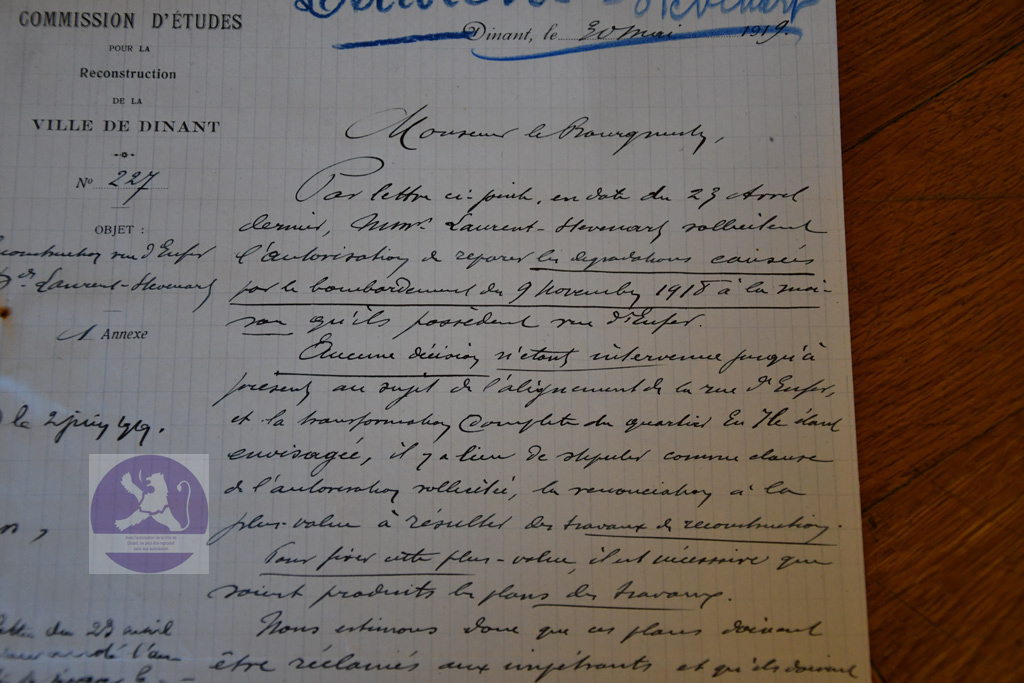 Laurent-Hevenart
COMMISSION D'ÉTUDES
POUR LA
Reconstruction
DE LA
VILLE DE DINANT
Nº 227
OBJET :
reconstruction rue d'Enfer
Laurent-Hevenart
1 Annexe
la 2 juin 1919.
Dinant, le 30 Mai 1919.
Monsieur le Bourgmestre,
Par lettre ci-jointe, en date du 23 Avril
dernier, Mme Laurent-Hevenart sollicitent
l'autorisation de réparer les dégradations causées
par le bombardement du 9 Novembre 1918 à la mai-
son qu'ils possèdent rue d'Enfer.
Aucune décision n'étant intervenue jusqu'à
présent au sujet de l'alignement de la rue d'Enfer,
et la transformation complète du quartier En Ile étant
envisagée, il y a lieu de stipuler comme clause
de l'autorisation sollicitée, la renonciation à la
plus-value à résulter des travaux de reconstruction.
Pour fixer cette plus-value, il est nécessaire que
soient produits les plans des travaux.
Nous estimons donc que ces plans doivent
être réclamés aux impétrants et qu'ils doivent
du 23 avril